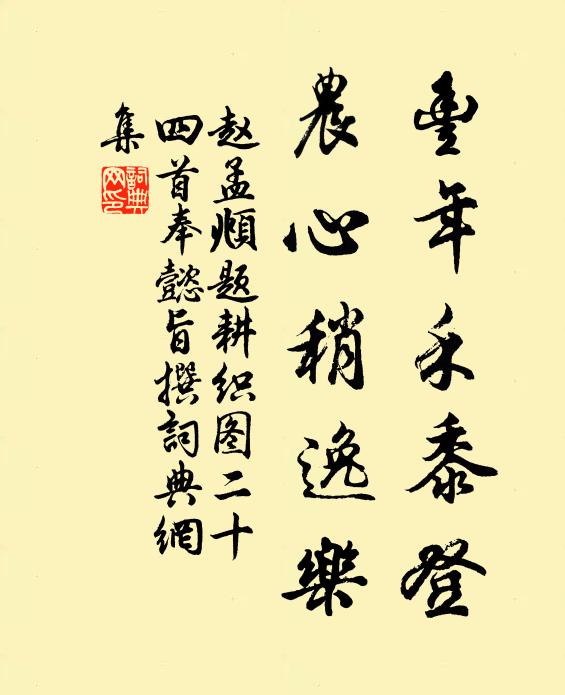 豊年禾黍登
農心稍逸樂
赵孟頫题耕织图二十
四首奉懿旨撰詞典網
集
詞典
网印